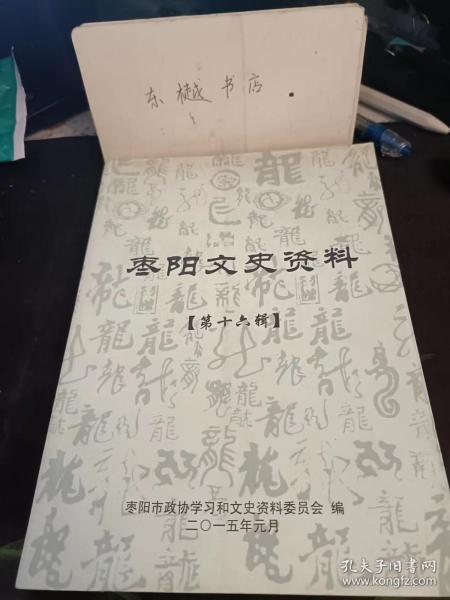 东樾书店
枣阳文史资料
【第十六辑】
枣阳市政协学习和文史资料委员会 编
二〇一五年元月
孔夫子旧书网
www.kongfz.com